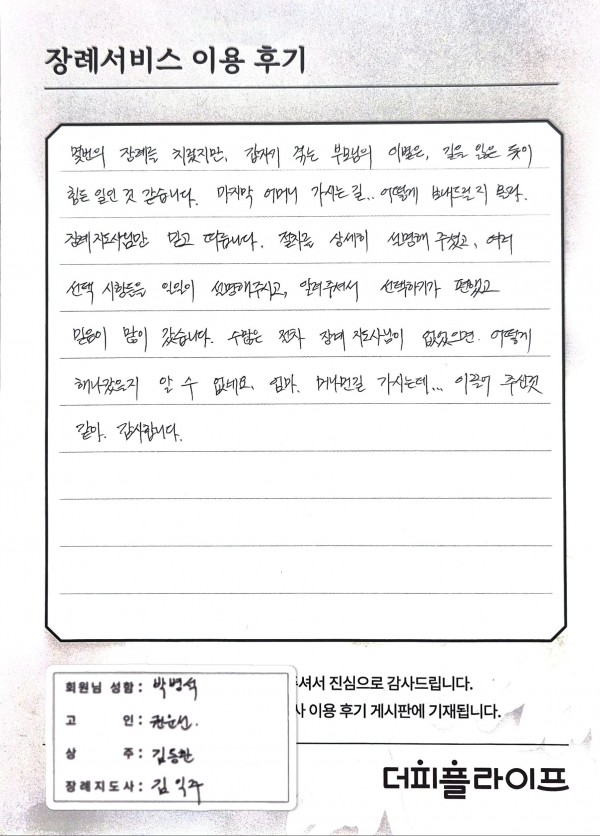 장례서비스 이용 후기
몇번의 장례를 치뤘지만, 갑자기 겪는 부모님의 이별은, 길을 잃은 듯이
힘든 일인 것 같습니다. 마지막 어머니 가시는 길.. 어떻게 보내드릴지 몰라.
장례지도사님만 믿고 따랐습니다. 절차를 상세히 설명해 주셨고, 여러
선택 사항들을 일일이 설명해주시고, 알려주셔서 선택하기가 편했고
믿음이 많이 갔습니다. 수많은 전차 장례지도사님이 없었으면 어떻게
해나갔을지 알 수 없네요, 엄마. 머나먼길 가시는데... 이끌어 주신것
같아. 감사합니다.
주셔서 진심으로 감사드립니다.
사 이용 후기 게시판에 기재됩니다.
회원님 성함 : 박병석
고 인 : 권운선.
상 주 : 김동환
장례지도사 : 김익주
더피플라이프